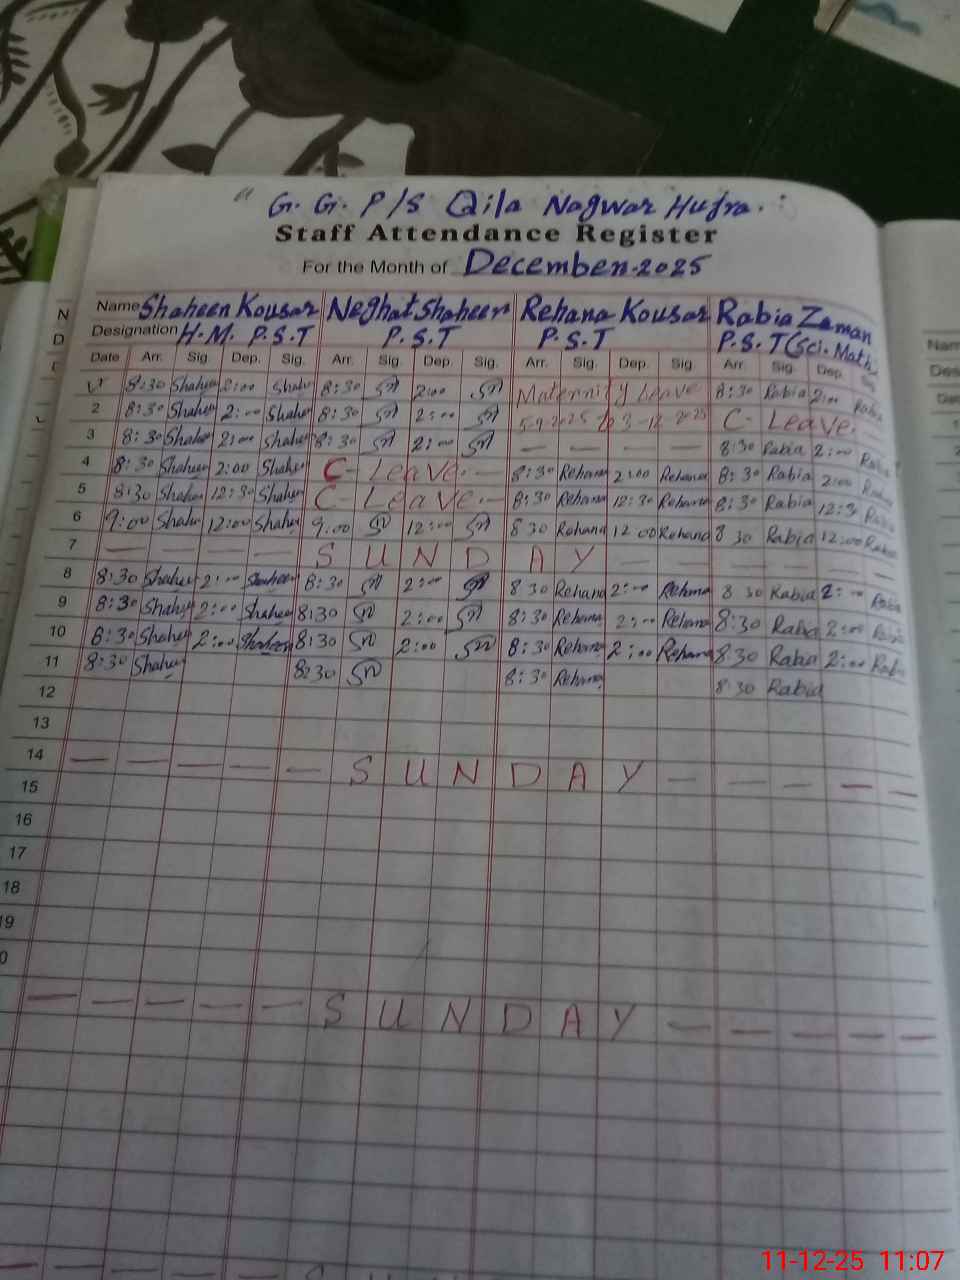 " G. G. P/S Qila Nagwar Hujra.
Staff Attendance Register
For the Month of December-2025
Name Shaheen Kousar Neghat Shaheen Rehana Kousar Rabia Zaman
Designation H.M. P.S.T P.S.T P.S.T P.S.T (Sci. Math
Date Arr. Sig. Dep. Sig. Arr. Sig. Dep. Sig. Arr. Sig. Dep. Sig. Arr. Sig. Dep. Sig.
8:30 Shaheen 2:00 Shaheen 8:30 2:00 Maternity Leave 8:30 Rabia 2:00 Rabia
2 8:30 Shaheen 2:00 Shaheen 8:30 2:00 5-9-2025 to 3-12-2025 C- Leave.
3 8:30 Shaheen 2:00 Shaheen 8:30 2:00 — — — — 8:30 Rabia 2:00 Rabia
4 8:30 Shaheen 2:00 Shaheen C- Leave. — 8:30 Rehana 2:00 Rehana 8:30 Rabia 2:00 Rabia
5 8:30 Shaheen 12:30 Shaheen C- Leave. — 8:30 Rehana 12:30 Rehana 8:30 Rabia 12:30 Rabia
6 9:00 Shaheen 12:00 Shaheen 9.00 12:00 8 30 Rehana 12 00 Rehana 8 30 Rabia 12:00 Rabia
7 — — — — S U N D A Y — — — — — —
8 8:30 Shaheen 2:00 Shaheen 8:30 2:00 8 30 Rehana 2:00 Rehana 8 30 Rabia 2:00 Rabia
9 8:30 Shaheen 2:00 Shaheen 8:30 2:00 8:30 Rehana 2:00 Rehana 8:30 Rabia 2:00 Rabia
10 8:30 Shaheen 2:00 Shaheen 8:30 2:00 8:30 Rehana 2:00 Rehana 8.30 Rabia 2:00 Rabia
11 8:30 Shaheen 8:30 8:30 Rehana 8:30 Rabia
12
13
14 — — — — — S U N D A Y — — — — —
15
16
17
18
19
— — — — — S U N D A Y — — — — —
11-12-25 11:07